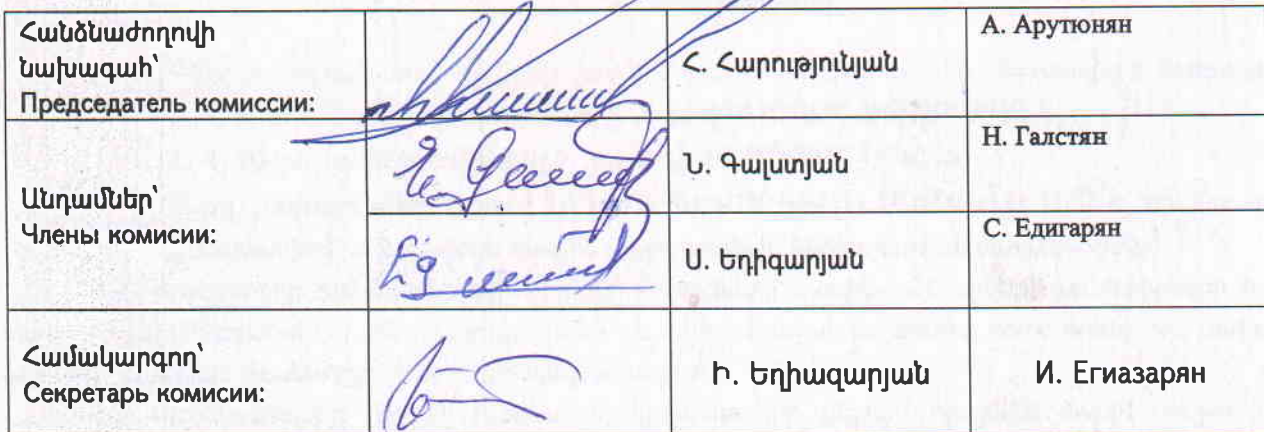 Հանձնաժողովի
նախագահ՝
Председатель комиссии:
Հ. Հարությունյան
А. Арутюнян
Անդամներ՝
Члены комисии:
Ն. Գալստյան
Н. Галстян
Ս. Եդիգարյան
С. Едигарян
Համակարգող՝
Секретарь комисии:
Ի. Եղիազարյան
И. Егиазарян